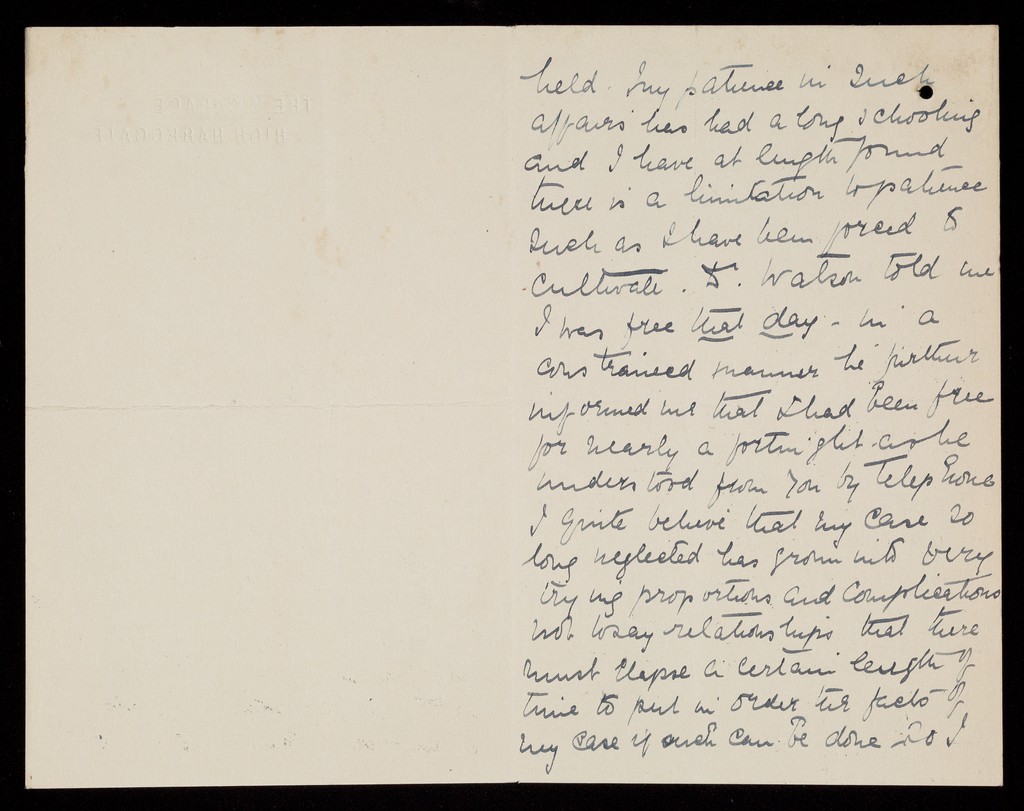 THE VICARAGE
HIGH HARROGATE
held. My patience in such
affairs has had a long schooling
and I have at length found
there is a limitation to patience
such as I have been forced to
cultivate. Dr. Watson told me
I was free that day - in a
constrained manner he further
informed me that I had been free
for nearly a fortnight as he
understood from you by telephone
I quite believe that my case so
long neglected has grown into very
trying proportions and complications
not to say relationships that there
must elapse a certain length of
time to put in order the facts of
my case if such can be done - so I